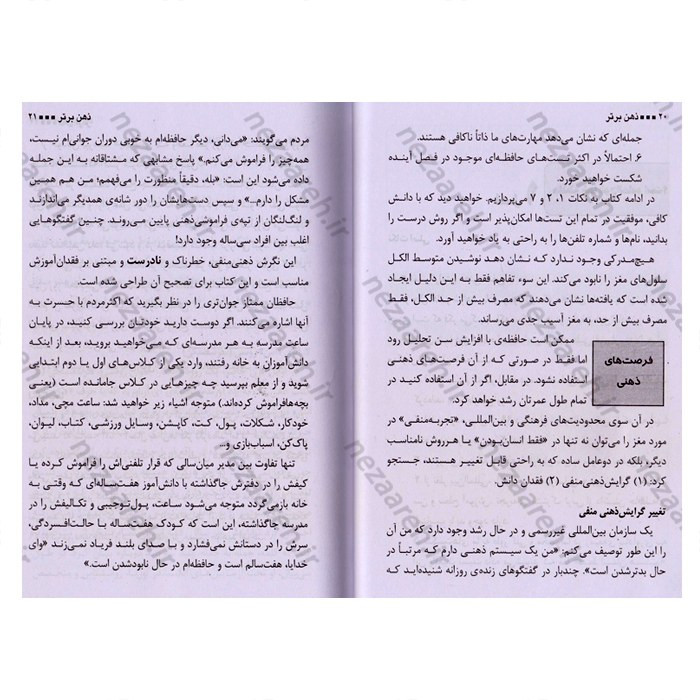 ۲۰ ■■■ ذهن برتر
جمله‌ای که نشان می‌دهد مهارت‌های ما ذاتاً ناکافی هستند.
۶. احتمالاً در اکثر تست‌های حافظه‌ای موجود در فصل آینده
شکست خواهید خورد.
در ادامه کتاب به نکات ۱، ۲ و ۷ می‌پردازیم. خواهید دید که با دانش
کافی، موفقیت در تمام این تست‌ها امکان‌پذیر است و اگر روش درست را
بدانید، نام‌ها و شماره تلفن‌ها را به راحتی به یاد خواهید آورد.
هیچ‌مدرکی وجود ندارد که نشان دهد نوشیدن متوسط الکل
سلول‌های مغز را نابود می‌کند. این سوء تفاهم فقط به این دلیل ایجاد
شده است که یافته‌ها نشان می‌دهند که مصرف بیش از حد الکل، فقط
مصرف بیش از حد، به مغز آسیب جدی می‌رساند.
فرصت‌های
ذهنی
ممکن است حافظه‌ی با افزایش سن تحلیل رود
اما فقط در صورتی که از آن فرصت‌های ذهنی
استفاده نشود. در مقابل، اگر از آن استفاده کنید در
تمام طول عمرتان رشد خواهد کرد.
در آن سوی محدودیت‌های فرهنگی و بین‌المللی، «تجربه‌منفی» در
مورد مغز را می‌توان نه تنها در «فقط انسان‌بودن» یا هرروش نامناسب
دیگر، بلکه در دوعامل ساده که به راحتی قابل تغییر هستند، جستجو
کرد: (۱) گرایش‌ذهنی‌منفی (۲) فقدان دانش.
تغییر گرایش‌ذهنی منفی
یک سازمان بین‌المللی غیررسمی و در حال رشد وجود دارد که من آن
را این طور توصیف می‌کنم: «من یک سیستم ذهنی دارم که مرتباً در
حال بدترشدن است». چندبار در گفتگوهای زنده‌ی روزانه شنیده‌اید که
ذهن برتر ■■■ ۲۱
مردم می‌گویند: «می‌دانی، دیگر حافظه‌ام به خوبی دوران جوانی‌ام نیست،
همه‌چیز را فراموش می‌کنم.» پاسخ مشابهی که مشتاقانه به این جمله
داده می‌شود این است: «بله، دقیقاً منظورت را می‌فهمم؛ من هم همین
مشکل را دارم...» و سپس دست‌هایشان را دور شانه‌ی همدیگر می‌اندازند
و لنگ‌لنگان از تپه‌ی فراموشی‌ذهنی پایین می‌روند. چنین گفتگوهایی
اغلب بین افراد سی‌ساله وجود دارد!
این نگرش ذهنی‌منفی، خطرناک و نادرست و مبتنی بر فقدان‌آموزش
مناسب است و این کتاب برای تصحیح آن طراحی شده است.
حافظان ممتاز جوان‌تری را در نظر بگیرید که اکثرمردم با حسرت به
آنها اشاره می‌کنند. اگر دوست دارید خودتان بررسی کنید، در پایان
ساعت مدرسه به هر مدرسه‌ای که می‌خواهید بروید، بعد از اینکه
دانش‌آموزان به خانه رفتند، وارد یکی از کلاس‌های اول یا دوم ابتدایی
شوید و از معلم بپرسید چه چیزهایی در کلاس جامانده است (یعنی
بچه‌هافراموش کرده‌اند.) متوجه اشیاء زیر خواهید شد: ساعت مچی، مداد،
خودکار، شکلات، پول، کت، کاپشن، وسایل ورزشی، کتاب، لیوان،
پاک‌کن، اسباب‌بازی و...
تنها تفاوت بین مدیر میان‌سالی که قرار تلفنی‌اش را فراموش کرده یا
کیفش را در دفترش جاگذاشته با دانش‌آموز هفت‌ساله‌ای که وقتی به
خانه بازمی‌گردد متوجه می‌شود ساعت، پول‌توجیبی و تکالیفش را در
مدرسه جاگذاشته، این است که کودک هفت‌ساله با حالت‌افسردگی،
سرش را در دستانش نمی‌فشارد و با صدای بلند فریاد نمی‌زند «وای
خدایا، هفت‌سالم است و حافظه‌ام در حال نابودشدن است.»
nezaareh.ir